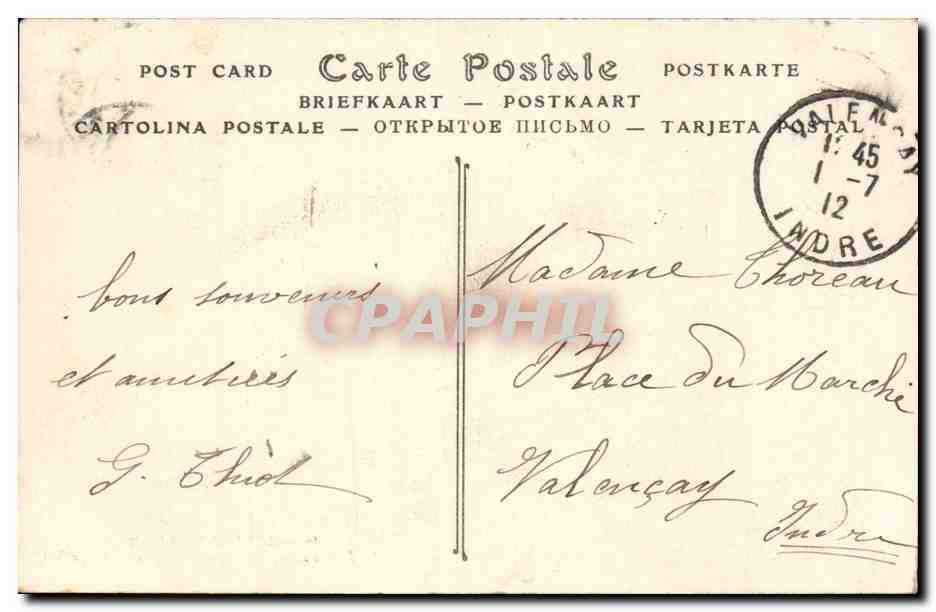 POST CARD Carte Postale POSTKARTE
BRIEFKAART — POSTKAART
CARTOLINA POSTALE — ОТКРЫТОЕ ПИСЬМО — TARJETA POSTAL
VALENCAY
12 45
1 -7
12
INDRE
bons souvenirs
et amitiés
G. Thiot
Madame Thoreau
Place du Marché
Valençay
Indre
CPAPHIL